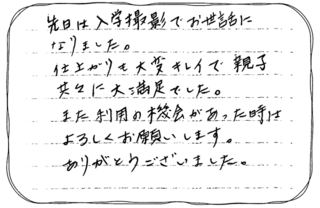 先日は入学撮影でお世話に
なりました。
仕上がりも大変キレイで親子
共々に大満足でした。
また利用の機会があった時は
よろしくお願いします。
ありがとうございました。